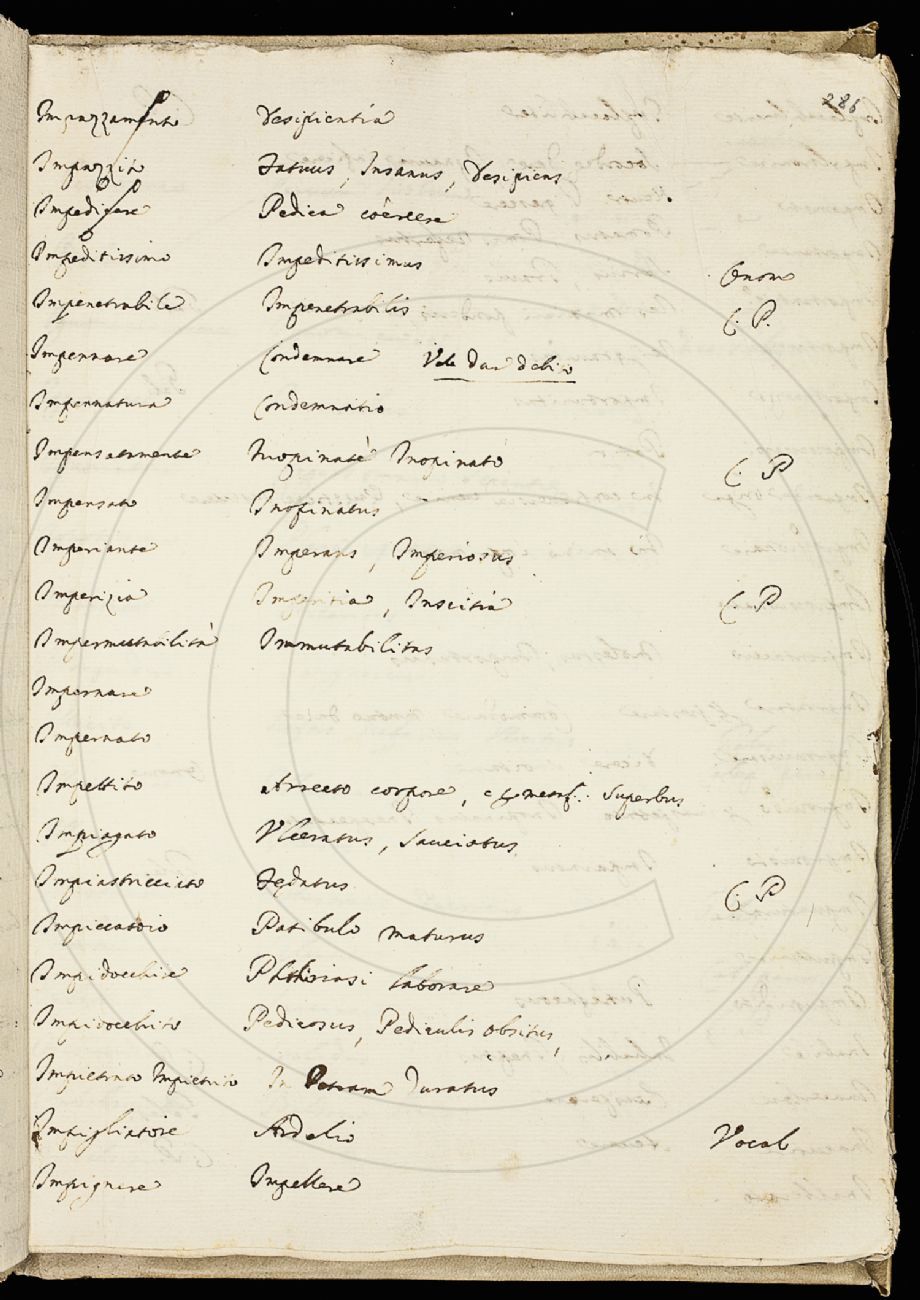 286
Impazzamento Desipientia
Impazzito Fatuus, Insanus, Desipiens
Impedicare Pedica coërcere
Impeditissimo Impeditissimus Onom
Impenetrabile Impenetrabilis C. P.
Impennare Condemnare Vale dar debito
Impennatura Condemnatio
Impensatamente Inopinatè Inopinatò C. P
Impensato Inopinatus
Imperiante Imperans, Imperiosus
Imperizia Imperitia, Inscitia C. P
Impermutabilità Immutabilitas
Impernare
Impernato
Impettito Arrecto corpore, e metaf. Superbus
Impiagato Ulceratus, Sauciatus
Impiastricciato Fędatus C. P
Impiccatoio Patibulo maturus
Impidocchire Phthiriasi laborare
Impidocchito Pedicosus, Pediculis obsitus,
Impietrato Impietrito In Petram duratus
Impigliatore Ardelio Vocab
Impignere Impellere